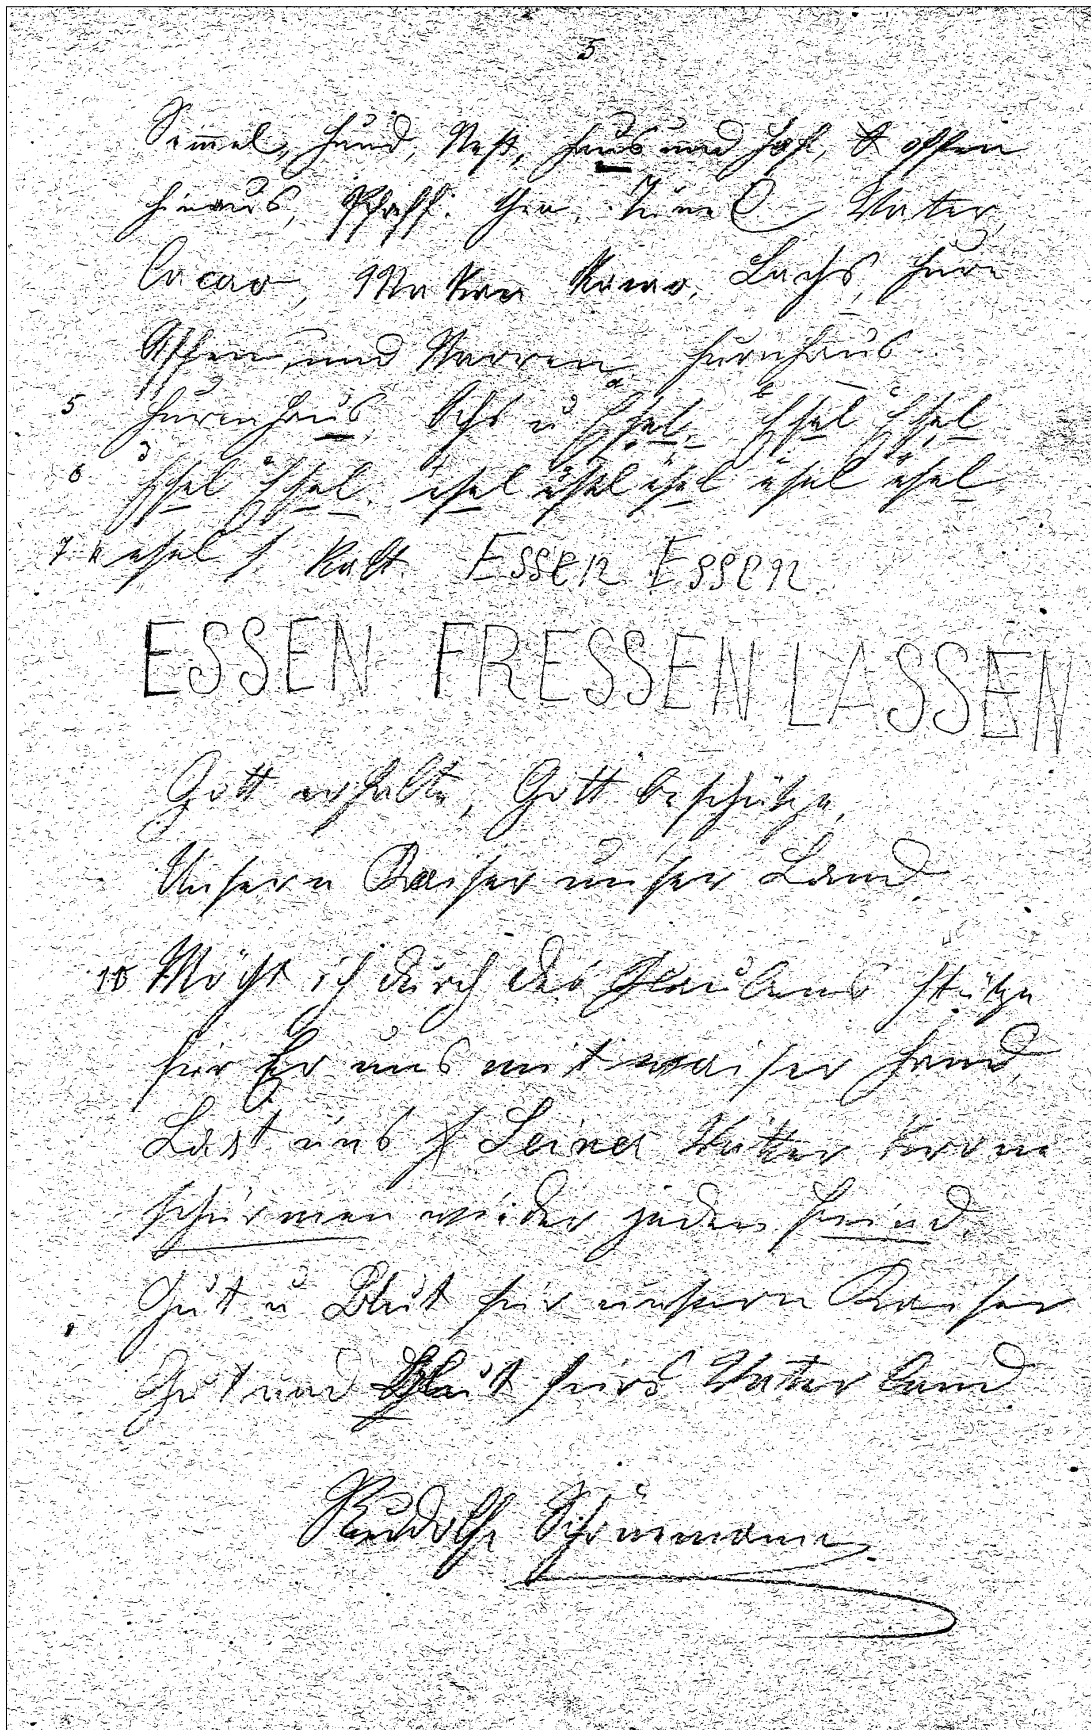 5
Semmel, Hund, Nest, Haus und Hof, offen
hinaus, Pfaff. Vater,
Cacao, Lachs, Hure
Affen und Narren, Hurnhaus
5 Hurenhaus Ochs u Esel, Esel Esel
6 Esel Esel, esel esel esel esel esel
7 esel Kalt. Essen Essen
ESSEN FRESSEN LASSEN
Gott erhalte, Gott beschütze,
Unsern Kaiser unser Land.
10 Möcht ich durch des Glaubens stütze
für Er uns mit waiser Hand,
Last uns Seiner Vätter Krone
schürmen wieder jeden Feind.
Gut u Blut für unsern Kaiser
Gut und Blut fürs Vaterland.
Rudolf